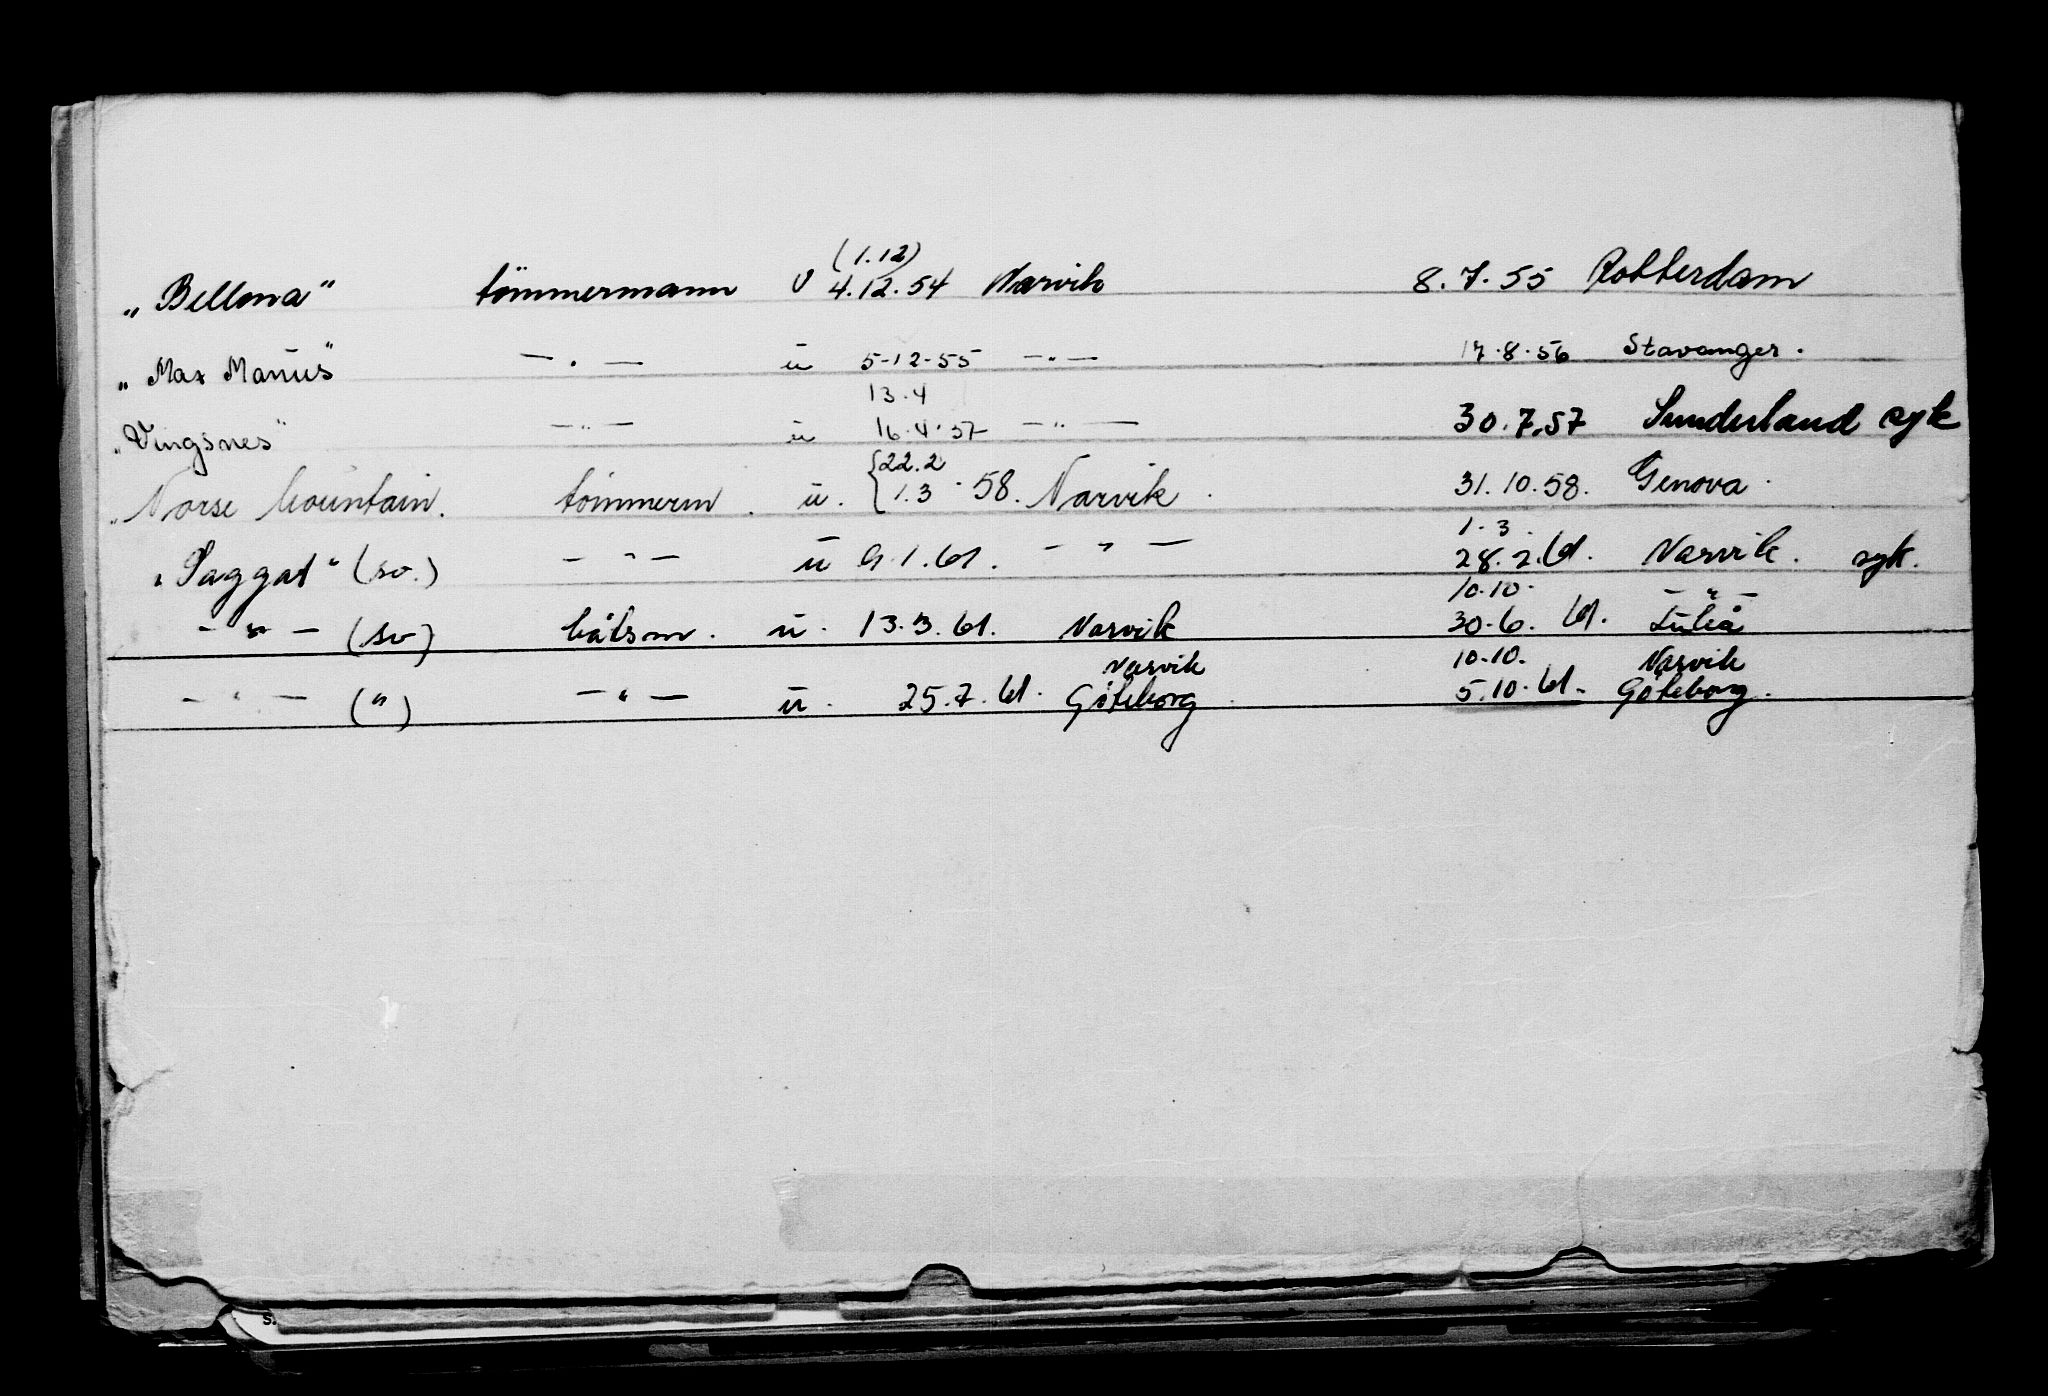 (1.12)
„Bellona" tömmermann U 4.12.54 Narvik 8.7.55 Rotterdam
„Max Manus" —〃— u 5-12-55 —〃— 17.8.56 Stavanger.
13.4
„Vingsnes" —〃— u 16.4.57 —〃— 30.7.57 Sunderland syk
{22.2
„Norse Mountain. tömmerm. u. {1.3.58. Narvik. 31.10.58. Genova.
1.3
„Saggat" (sv.) —〃— u 9.1.61. —〃— 28.2.61. Narvik. syk.
10.10. —〃—
—〃— (sv) båtsm. u. 13.3.61. Narvik 30.6.61. Luleå
Narvik 10.10. Narvik
—〃— (〃) —〃— u. 25.7.61. Göteborg. 5.10.61. Göteborg.
S.